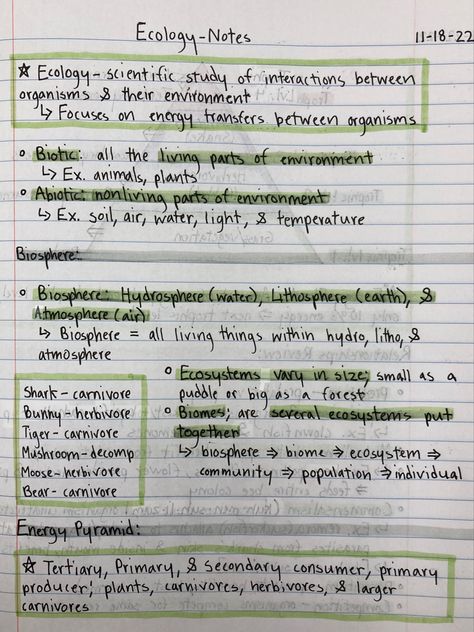 Ecology-Notes 11-18-22
☆ Ecology- scientific study of interactions between
organisms & their environment
↳ Focuses on energy transfers between organisms
○ Biotic: all the living parts of environment
↳ Ex. animals, plants
○ Abiotic: nonliving parts of environment
↳ Ex. soil, air, water, light, & temperature
Biosphere:
○ Biosphere: Hydrosphere (water), Lithosphere (earth), &
Atmosphere (air)
↳ Biosphere = all living things within hydro, litho, &
atmosphere
○ Ecosystems vary in size; small as a
puddle or big as a forest
○ Biomes; are several ecosystems put
together
↳ biosphere ⇒ biome ⇒ ecosystem ⇒
community ⇒ population ⇒ individual
Shark- carnivore
Bunny- herbivore
Tiger- carnivore
Mushroom-decomp
Moose-herbivore
Bear- carnivore
Energy Pyramid:
☆ Tertiary, Primary, & secondary consumer, primary
producer; plants, carnivores, herbivores, & larger
carnivores